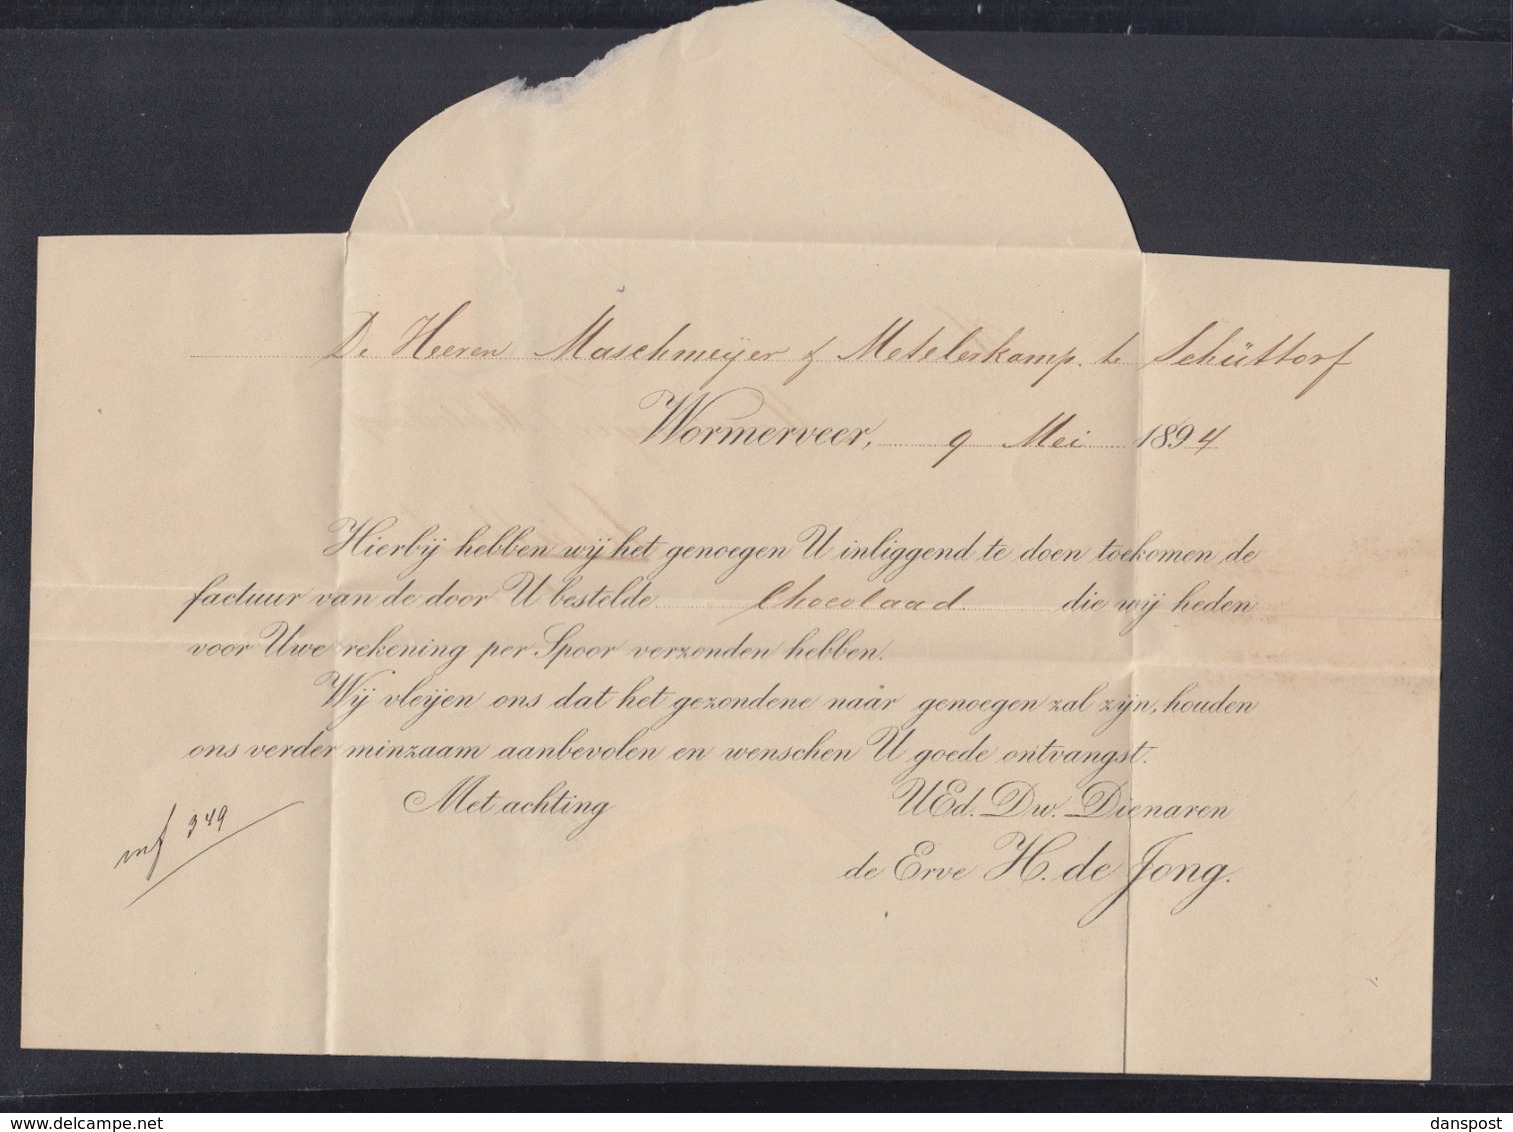 De Heeren Maschmeijer & Metelerkamp. te Schüttorf
Wormerveer, 9 Mei 1894
Hierbij hebben wij het genoegen U inliggend te doen toekomen de
factuur van de door U bestelde Chocolaad die wij heden
voor Uwe rekening per Spoor verzonden hebben.
Wij vleijen ons dat het gezondene naar genoegen zal zijn, houden
ons verder minzaam aanbevolen en wenschen U goede ontvangst.
Met achting UEd. Dw. Dienaren
de Erve H. de Jong.
349
danspost